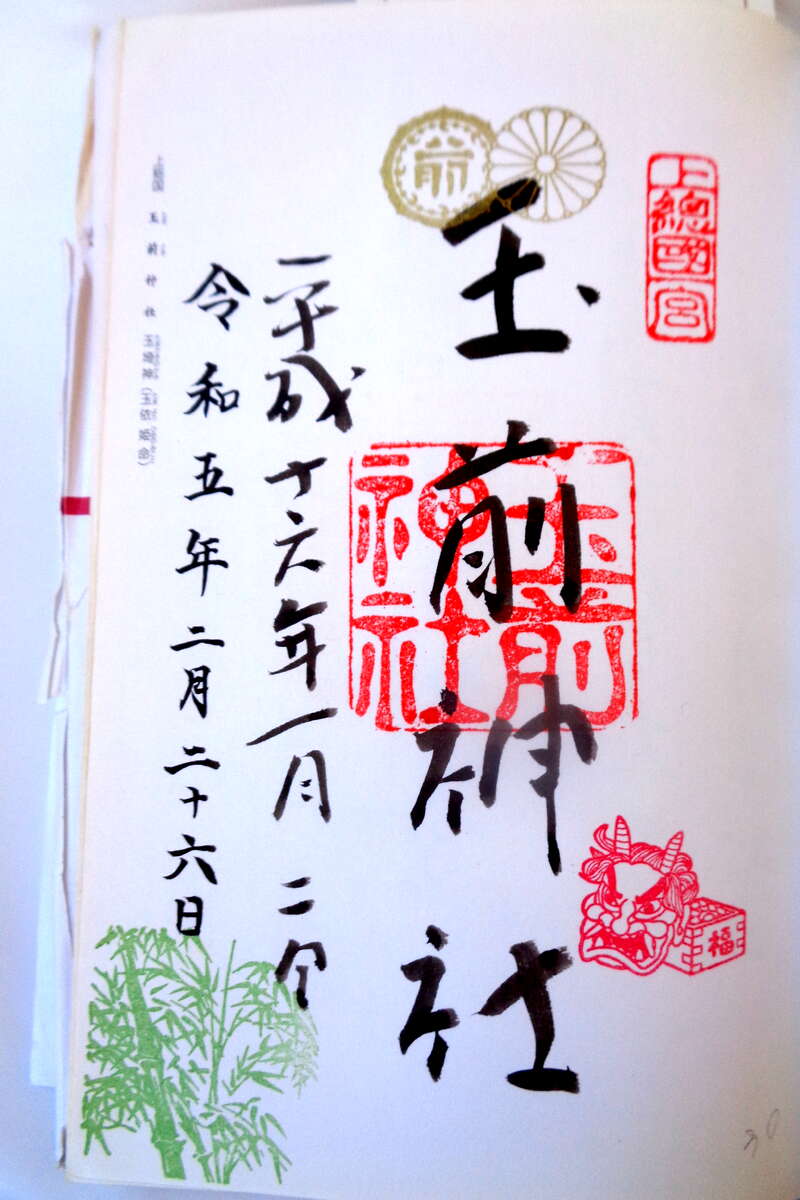 上總國一宮
前
玉前神社
玉前
神社
福
平成十六年一月二
令和五年二月二十六日
上総国 玉前神社 玉埼神(玉依姫命)